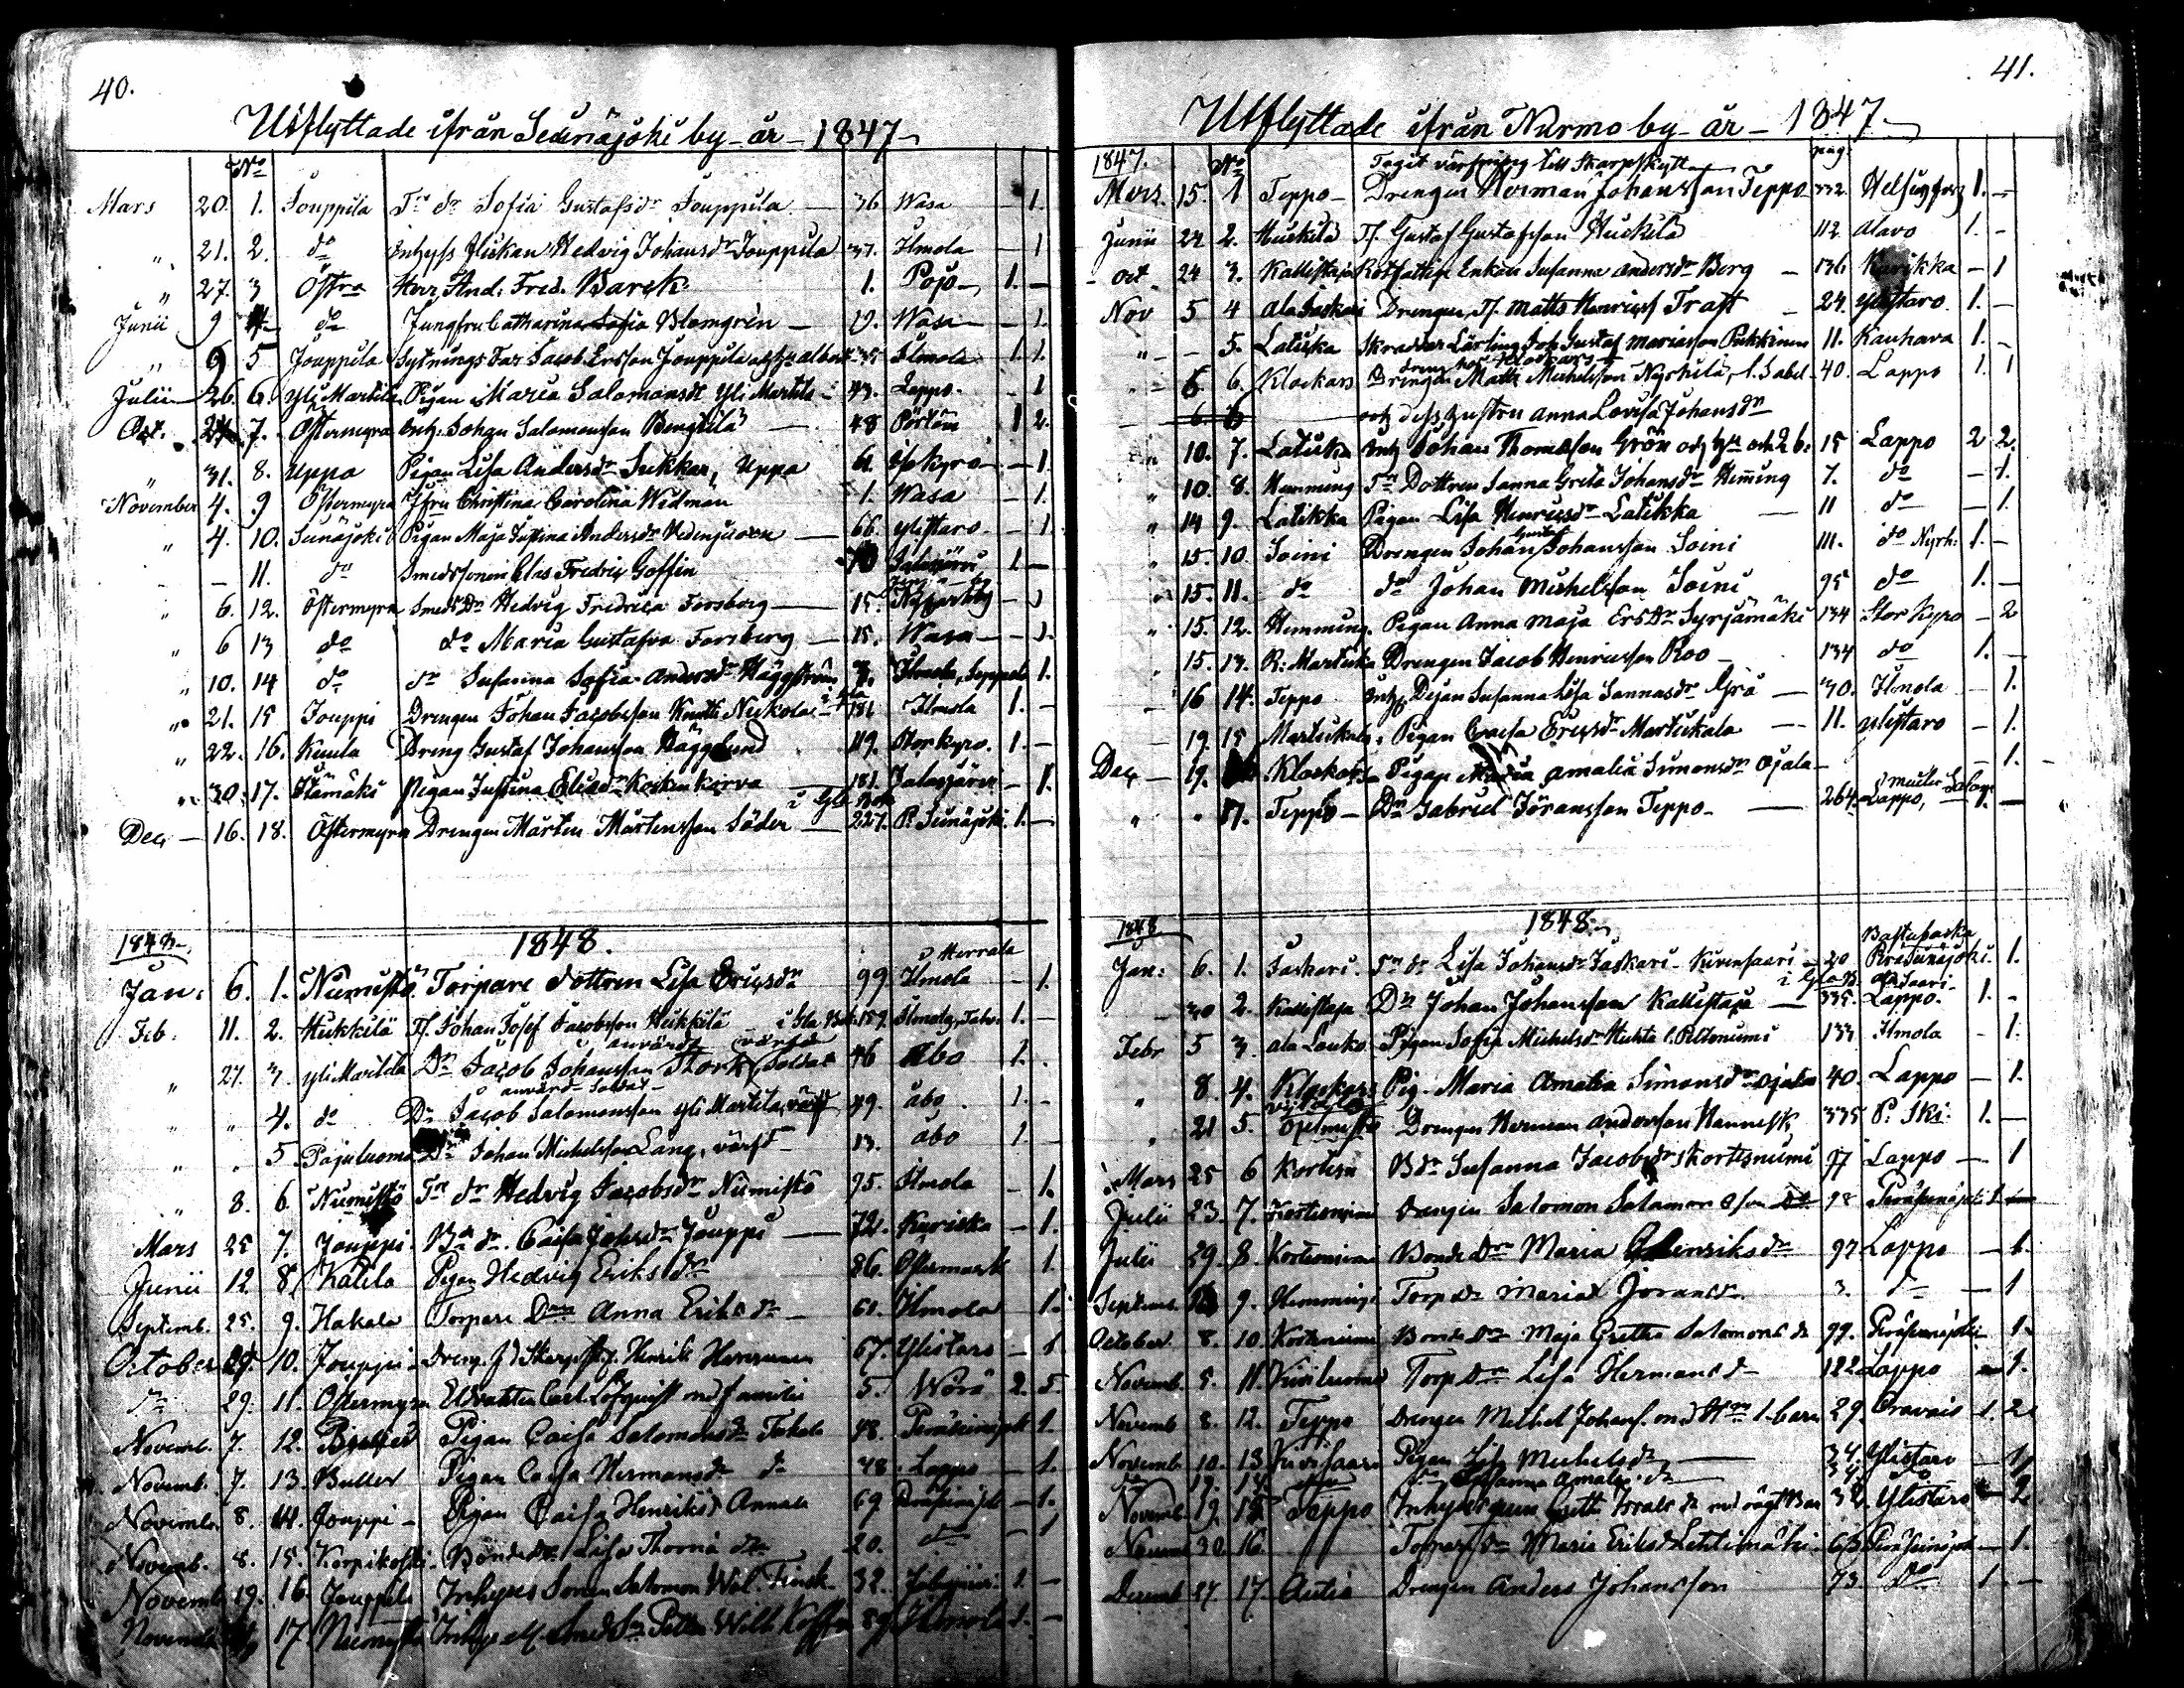 40.
Utflyttade ifrån Seinäjoki by år 1847
No
Mars 20. 1. Jouppila Tr dr Sofia Gustafsdr Jouppila 36 Wasa 1.
" 21. 2. do Inhyss flickan Hedvig Johansdr Jouppila 37. Ilmola 1
" 27. 3 Östra Herr And. Fred. Barck 1. Pojo 1.
Junii 9 4 do Jungfru Catharina Sofia Blomgrén 19. Wasa 1.
" 9 5 Jouppila Sytnings Far Jacob Ersson Jouppila Ilmola 1. 1.
Julii 26. 6. Yli Marttila Pigan Maria Salomonsdr Yli Marttila 43. Lappo. 1
Oct. 24 7. Östermyra Inh: Johan Salomonsson Bengtilä 48 Pörtom 1 2.
" 31. 8. Uppa Pigan Lisa Andersdr Sukkari, Uppa 61. Storkyro 1.
November 4. 9 Östermyra Jfru Christina Carolina Widman 1. Wasa 1.
" 4. 10. Seinäjoki Pigan Maja Justina Andersdr 66. Ylistaro 1.
- 11. do Smedssonen Clas Fredric Goffin 70 Jalasjärvi 1.
" 6. 12. Östermyra Smeds Dr Hedvig Fredrica Forsberg 15. 1
" 6 13 do do Maria Gustafva Forsberg 15. Wasa 1.
" 10. 14 do do Susanna Sofia Andersdr Häggström 7. Ilmola, Seppälä 1.
" 21. 15 Jouppi Drengen Johan Jacobsson Knutti Neckola 181 Ilmola 1.
" 22. 16. Knuula Dreng Gustaf Johansson Hägglund 119. Storkyro. 1.
" 30. 17. Itämäki Pigan Justina Eliaedr Koskenkorva 181. Jalasjärvi 1.
i Gla Bok
Dec 16. 18. Östermyra Drengen Mårten Mårtensson Söder 227. P. Seinäjoki 1.
1848. 1848.
Jan: 6. 1. Niemistö Torpare dottren Lisa Ericsdr 99 Ilmola 1.
Feb. 11. 2. Hukkilä Tf. Johan Josef Jacobsson Hukkilä i Gla Bok 159. Ilmola 1.
" 27. 3. Yli Marttila Dr Jacob Johansson Stork, Soldat 46 Åbo 1.
använd soldat
" " 4. do Dr Jacob Salomonsson Yli Marttila, värf 49. Åbo 1.
" " 5 Pajuluoma Dr Johan Michelsson Lång, värf 13. Åbo 1
" 8. 6 Niemistö Tr dr Hedvig Jacobsdr Niemistö 95. Ilmola 1.
Mars 25 7. Jouppi Bd dr. Caisa Jahsdr Jouppi 72. Kurikka 1.
Junii 12 8. Katila Pigan Hedvig Eriksdr 86. Östermark 1.
Septemb. 25. 9. Hakala Torpare Dr Anna Eriksdr 61. Ilmola 1.
October 29. 10. Jouppi Henrik 67. Ylistaro 1
do 29. 11. Östermyra Eldvakten Carl Löfquist med familie 5. Wörå 2. 5.
Novemb. 7. 12. Pigan Caisa Salomonsdr 48. Peräseinäjoki 1.
Novemb. 7. 13. Buller Pigan Caisa Hermansdr do 48. Lappo 1.
Novemb. 8. 14. Jouppi Pigan Caisa Henriksdr Annala 69 Peräseinäjoki 1.
Novemb. 8. 15. Karpikoski Bondedr Lisa Thomæ dr 20. do 1
Novemb. 19. 16. Jouppila Inhyses Sonen Salomon Wil. Finsk. 32. 1.
Novemb. 17. Niemistö Petter Wilh. 89. Ilmola 1.
41.
Utflyttade ifrån Nurmo by år 1847.
1847. No Tagit värfning till Skarpskytt pag.
Mars. 15. 1 Teppo Drengen Herman Johansson Teppo 332. Helsingfors 1.
Junii 24 2. Huckila Tf. Gustaf Gustafsson Huckila 112 Alavo 1.
oct. 24 3. Kallistaja Rotfattige Enkan Susanna Andersdr Berg 136 Kurikka 1
Nov 5 4 Ala Jaskari Drengen, Tf. Matts Henricss Trast 24. Ylistaro. 1.
" - 5. Latikka Skräddar Lärling Joh. Gustaf Mariasson Pukkinen 11. Kauhava 1.
" 6. 6. Klockars Drengen Matts Michelsson Nyrhilä, 40. Lappo 1 1
6 6 och dess hustru Anna Lovisa Johansdr
" 10. 7. Latikka Inh Johan Thomasson Grön och hu och 2 b: 15 Lappo 2 2.
" 10. 8. Hemming Tr Dottren Sanna Greta Johansdr Heming 7. do 1.
" 14 9. Latikka Pigan Lisa Henricsdr Latikka 11 do 1.
" 15. 10. Soini Drengen Johan Gustaf Johansson Soini 111. do Nyrh: 1.
" 15. 11. do do Johan Michelsson Soini 95 do 1.
" 15. 12. Hemming. Pigan Anna Maja Ersdr Syrjämäki 134 Storkyro 2
15. 13. R: Martikka Drengen Jacob Henricsson Roo 134 do 1.
16 14. Teppo Susanna Lisa Sannasdr Grå 30. Ilmola 1.
19. 15 Martikkala, Pigan Caisa Ericsdr Martikkala 11. Ylistaro 1.
Dec 19. Klockars Pigan Maria Amalia Simonsdr Ojala 1.
" " 17. Teppo Dr Gabriel Göransson Teppo 264. Lappo, 1.
1848 1848.
Jan: 6. 1. Jaskari Tr dr Lisa Johansdr Jaskari Kivensaari 20 Peräseinäjoki. 1.
30 2. Kallistaja Dr Johan Johansson Kallistaja 335. Lappo. 1.
Febr 5 3. Ala Louko Pigan Sofia Michelsdr 133 Ilmola 1.
" 8. 4. Klockars Pig. Maria Amalia Simonsdr Ojala 40. Lappo 1.
" 21 5. Drengen Herman Andersson 335 P. Ski: 1.
Mars 25 6 Kortesn Bdr Susanna Jacobsdr Kortesniemi 97 Lappo 1
Julii 23. 7. Kortesniemi Drengen Salomon Salomonsson 98 Peräseinäjoki 1.
Julii 29. 8. Kortesniemi Bonde Dr Maria Henriksdr 97 Lappo 1.
Septemb. 9. Hemmings Torp dr Maria Jörans dr 3. do 1
October 8. 10. Kortesniemi Bonde Dr Maja Gretha Salomons dr 99. Peräseinäjoki 1.
Novemb. 5. 11. Torp Dr Lisa Hermans dr 122 Lappo 1.
Novemb 8. 12. Teppo Drengen Michel Johanss. med 1 barn 29. Oravais 1. 2.
Novemb. 10. 13. Kivisaari Pigan Lisa Michelsdr 34. Ylistaro 1
do 19. 14. do do Susanna Amalia dr 34 do 1
Novemb. 19. 15 Teppo 32. Ylistaro 2.
Novemb 30. 16. Torpare Dr Maria Eriksdr Lehtimäki 63 Peräseinäjoki 1.
Decemb 27. 17. Autio Drengen Anders Johansson 73. Do 1